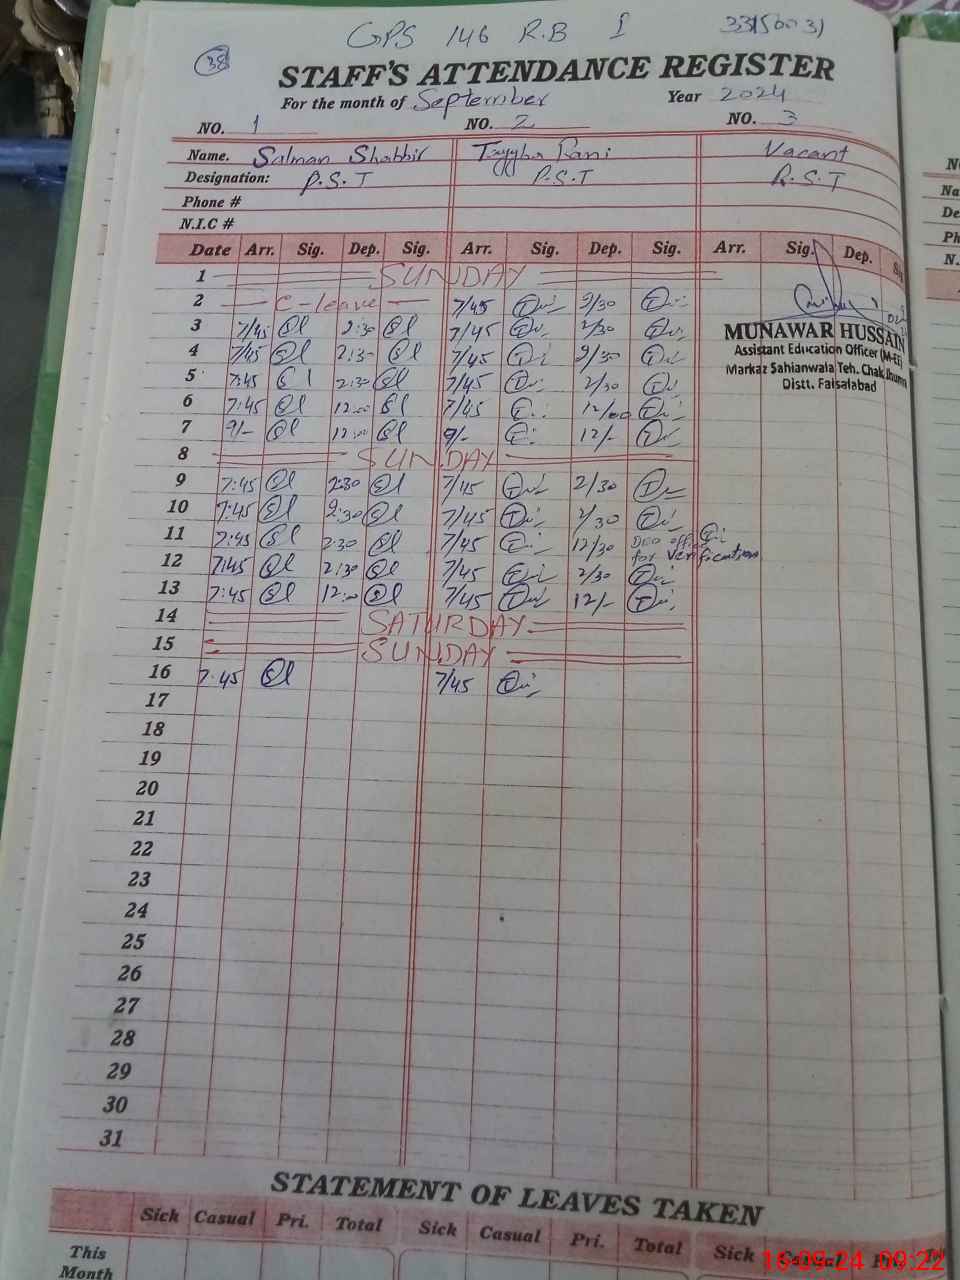 GPS 146 R.B I 33150031
38
STAFF'S ATTENDANCE REGISTER
For the month of September Year 2024
NO. 1 NO. 2 NO. 3
Name. Salman Shabbir Tayyba Rani Vacant
Designation: P.S.T P.S.T P.S.T
Phone #
N.I.C #
Date Arr. Sig. Dep. Sig. Arr. Sig. Dep. Sig. Arr. Sig. Dep.
1 SUNDAY
2 C-leave 7/45 2/30
3 7/45 2:30 7/45 2/30
4 7/45 2:30 7/45 2/30
5 7:45 2:30 7/45 2/30
6 7:45 12:00 7/45 12/00
7 9/- 12:00 9/- 12/-
8 SUNDAY
9 7:45 2:30 7/45 2/30
10 7:45 2:30 7/45 2/30
11 7:45 2:30 7/45 12/30 DEO office for verification
12 7:45 2:30 7/45 2/30
13 7:45 12:00 7/45 12/-
14 SATURDAY
15 SUNDAY
16 7:45 7/45
17
18
19
20
21
22
23
24
25
26
27
28
29
30
31
MUNAWAR HUSSAIN
Assistant Education Officer (M-EE)
Markaz Sahianwala Teh. Chak Jhumra
Distt. Faisalabad
STATEMENT OF LEAVES TAKEN
Sick Casual Pri. Total Sick Casual Pri. Total Sick Casual Pri.
This
Month
16-09-24 09:22